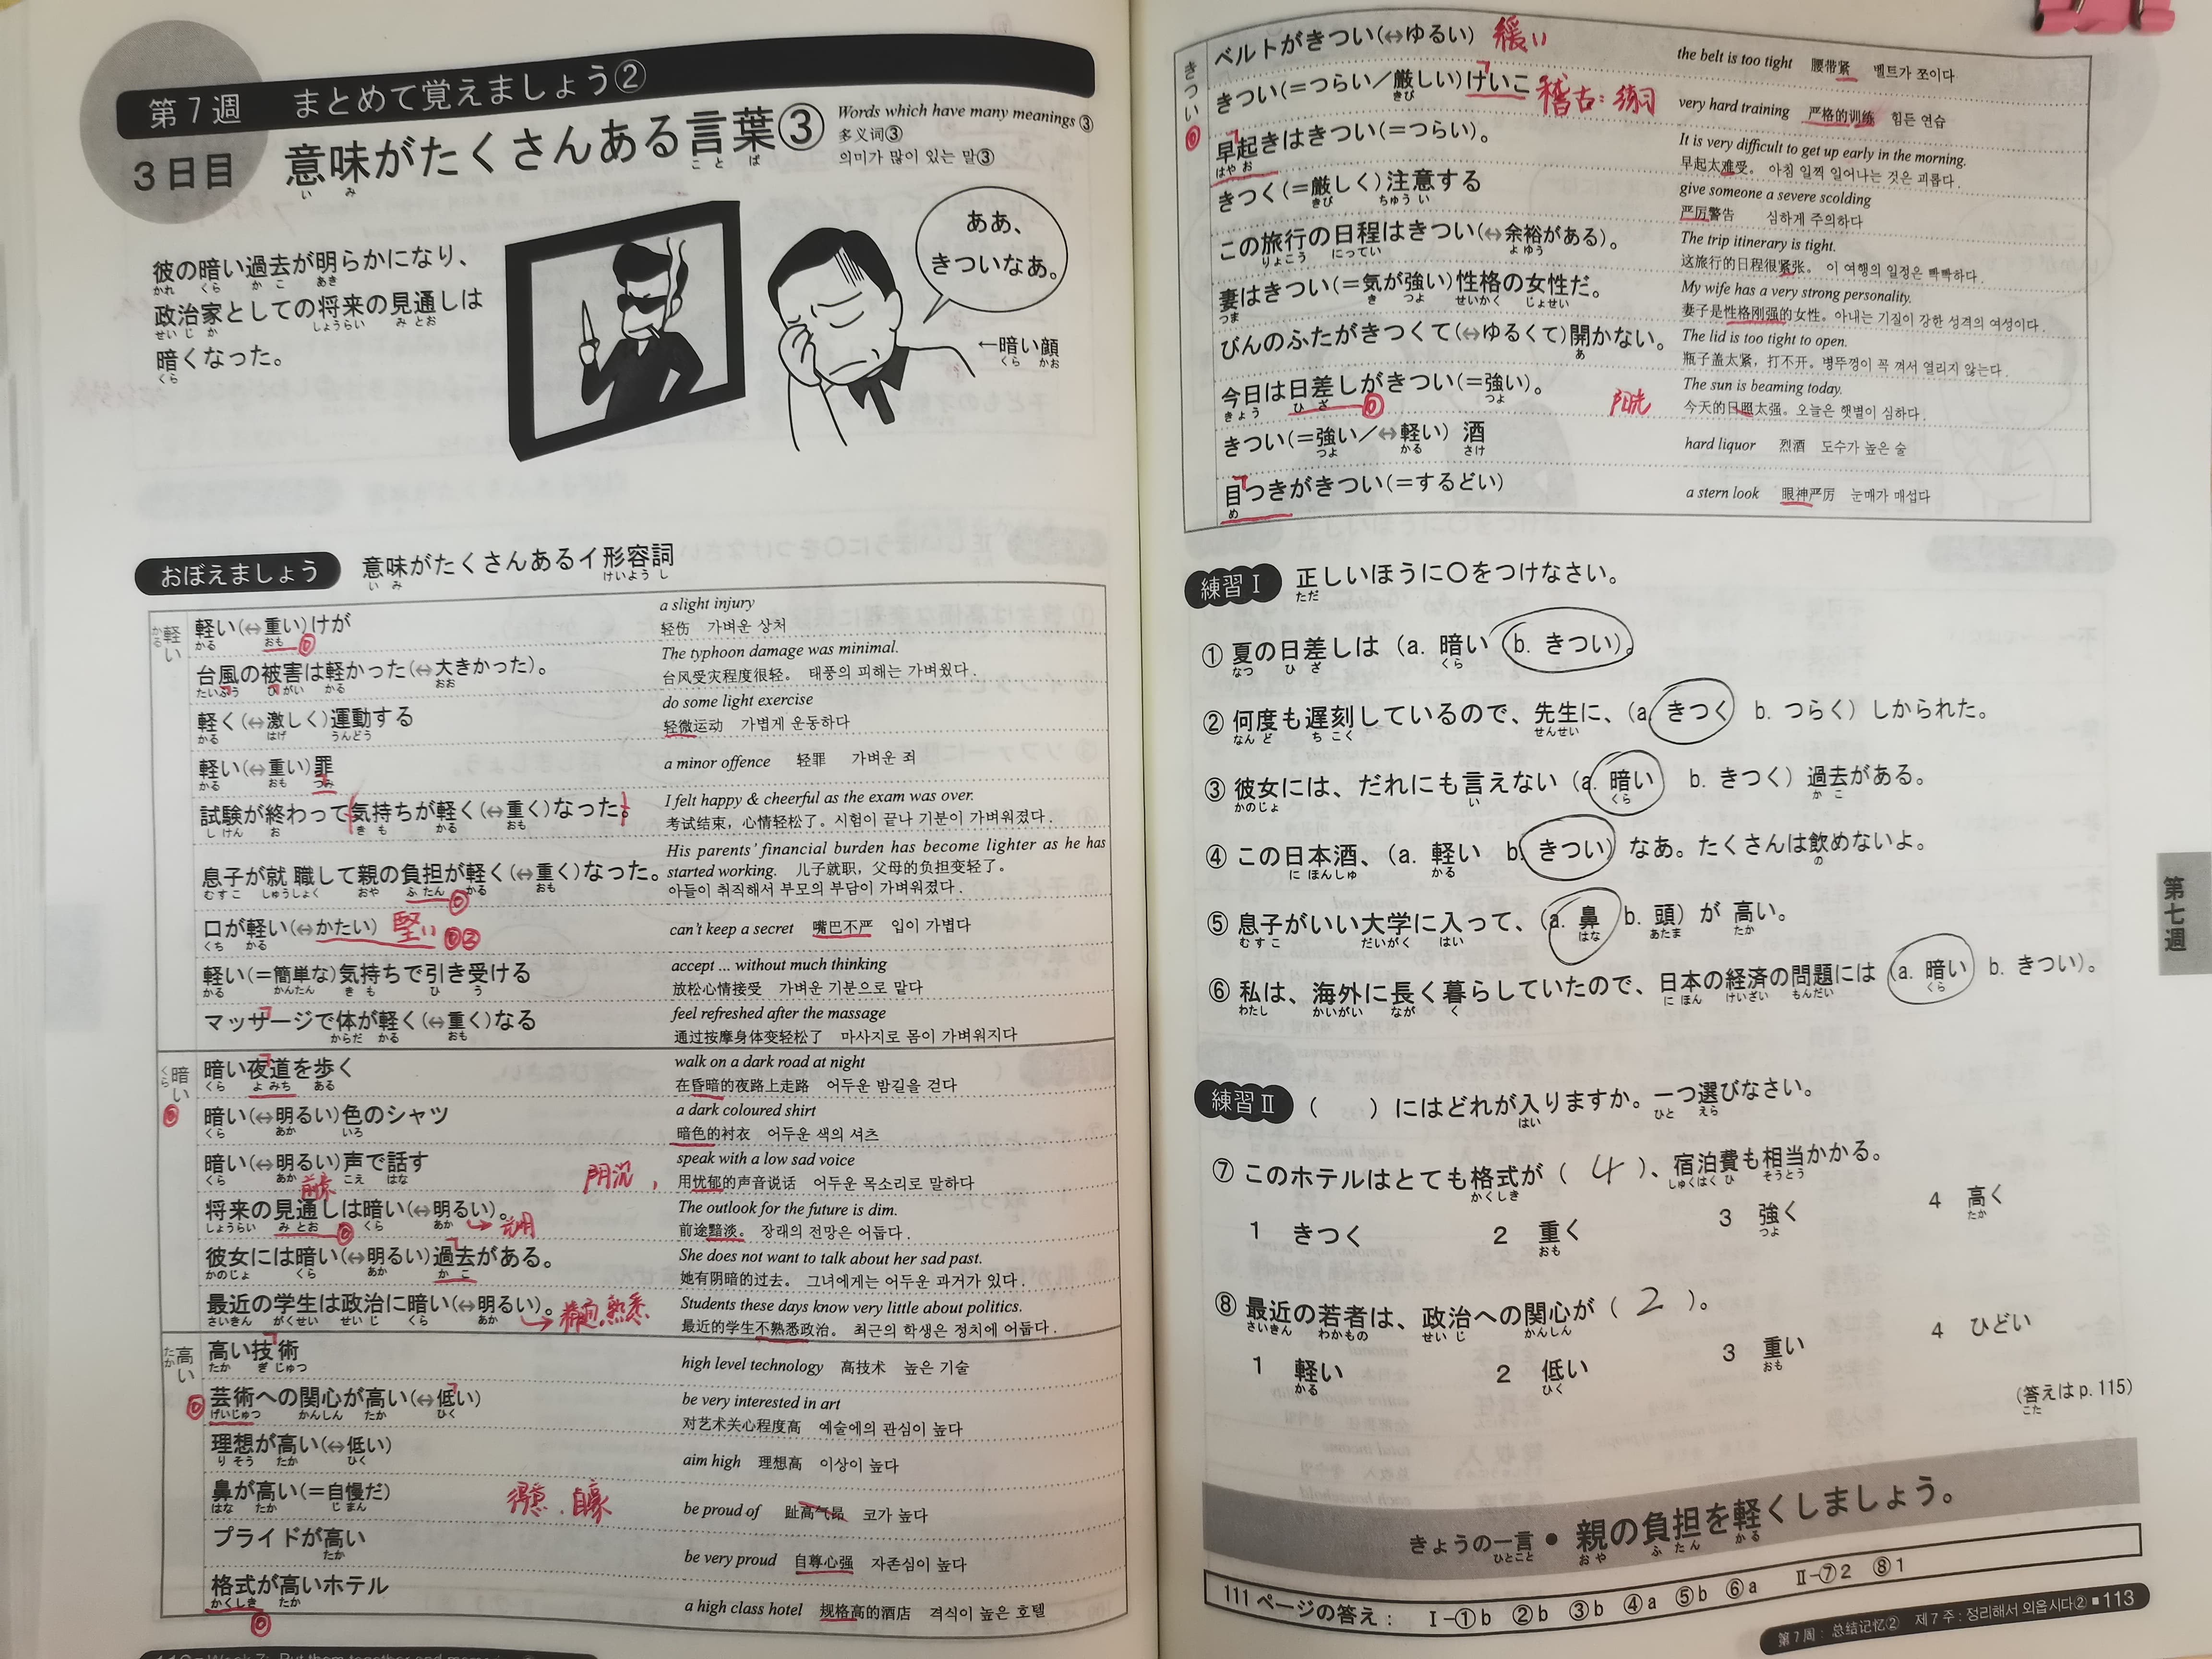 第7週 まとめて覚えましょう②
3日目 意味がたくさんある言葉③
いみ ことば
Words which have many meanings ③
多义词③
의미가 많이 있는 말③
彼の暗い過去が明らかになり、
かれ くら かこ あき
政治家としての将来の見通しは
せいじか しょうらい みとお
暗くなった。
くら
ああ、
きついなあ。
←暗い顔
くら かお
おぼえましょう 意味がたくさんあるイ形容詞
いみ けいようし
軽い
かる
軽い(⇔重い)けが
かる おも
a slight injury
轻伤 가벼운 상처
台風の被害は軽かった(⇔大きかった)。
たいふう ひがい かる おお
The typhoon damage was minimal.
台风受灾程度很轻。 태풍의 피해는 가벼웠다.
軽く(⇔激しく)運動する
かる はげ うんどう
do some light exercise
轻微运动 가볍게 운동하다
軽い(⇔重い)罪
かる おも つみ
a minor offence 轻罪 가벼운 죄
試験が終わって気持ちが軽く(⇔重く)なった。
しけん お きも かる おも
I felt happy & cheerful as the exam was over.
考试结束，心情轻松了。시험이 끝나 기분이 가벼워졌다.
息子が就職して親の負担が軽く(⇔重く)なった。
むすこ しゅうしょく おや ふたん かる おも
His parents' financial burden has become lighter as he has
started working. 儿子就职，父母的负担变轻了。
아들이 취직해서 부모의 부담이 가벼워졌다.
口が軽い(⇔かたい) 堅い ⓪②
くち かる
can't keep a secret 嘴巴不严 입이 가볍다
軽い(＝簡単な)気持ちで引き受ける
かる かんたん きも ひ う
accept ... without much thinking
放松心情接受 가벼운 기분으로 맡다
マッサージで体が軽く(⇔重く)なる
からだ かる おも
feel refreshed after the massage
通过按摩身体变轻松了 마사지로 몸이 가벼워지다
暗い
くら
⓪
暗い夜道を歩く
くら よみち ある
walk on a dark road at night
在昏暗的夜路上走路 어두운 밤길을 걷다
暗い(⇔明るい)色のシャツ
くら あか いろ
a dark coloured shirt
暗色的衬衣 어두운 색의 셔츠
暗い(⇔明るい)声で話す 阴沉，
くら あか こえ はな
speak with a low sad voice
用忧郁的声音说话 어두운 목소리로 말하다
前景
将来の見通しは暗い(⇔明るい)。
しょうらい みとお くら あか
The outlook for the future is dim.
前途黯淡。 장래의 전망은 어둡다.
彼女には暗い(⇔明るい)過去がある。
かのじょ くら あか かこ
She does not want to talk about her sad past.
她有阴暗的过去。 그녀에게는 어두운 과거가 있다.
最近の学生は政治に暗い(⇔明るい)。 精通,熟悉
さいきん がくせい せいじ くら あか
Students these days know very little about politics.
最近的学生不熟悉政治。 최근의 학생은 정치에 어둡다.
高い
たか
⓪
高い技術
たか ぎじゅつ
high level technology 高技术 높은 기술
芸術への関心が高い(⇔低い)
げいじゅつ かんしん たか ひく
be very interested in art
对艺术关心程度高 예술에의 관심이 높다
理想が高い(⇔低い)
りそう たか ひく
aim high 理想高 이상이 높다
鼻が高い(＝自慢だ) 得意.自豪
はな たか じまん
be proud of 趾高气昂 코가 높다
プライドが高い
たか
be very proud 自尊心强 자존심이 높다
格式が高いホテル
かくしき たか
⓪
a high class hotel 规格高的酒店 격식이 높은 호텔
きつい
⓪
ベルトがきつい(⇔ゆるい) 緩い
the belt is too tight 腰带紧 벨트가 쪼이다
きつい(＝つらい／厳しい)けいこ 稽古：练习
きび
very hard training 严格的训练 힘든 연습
早起きはきつい(＝つらい)。
はやお
It is very difficult to get up early in the morning.
早起太难受。 아침 일찍 일어나는 것은 괴롭다.
きつく(＝厳しく)注意する
きび ちゅうい
give someone a severe scolding
严厉警告 심하게 주의하다
この旅行の日程はきつい(⇔余裕がある)。
りょこう にってい よゆう
The trip itinerary is tight.
这旅行的日程很紧张。 이 여행의 일정은 빡빡하다.
妻はきつい(＝気が強い)性格の女性だ。
つま き つよ せいかく じょせい
My wife has a very strong personality.
妻子是性格刚强的女性。아내는 기질이 강한 성격의 여성이다.
びんのふたがきつくて(⇔ゆるくて)開かない。
あ
The lid is too tight to open.
瓶子盖太紧，打不开。병뚜껑이 꼭 껴서 열리지 않는다.
今日は日差しがきつい(＝強い)。 阳光
きょう ひざ ⓪ つよ
The sun is beaming today.
今天的日照太强。오늘은 햇볕이 심하다.
きつい(＝強い／⇔軽い) 酒
つよ かる さけ
hard liquor 烈酒 도수가 높은 술
目つきがきつい(＝するどい)
め
a stern look 眼神严厉 눈매가 매섭다
練習Ⅰ 正しいほうに○をつけなさい。
ただ
① 夏の日差しは (a. 暗い b. きつい)。
なつ ひざ くら
② 何度も遅刻しているので、先生に、(a. きつく b. つらく) しかられた。
なんど ちこく せんせい
③ 彼女には、だれにも言えない (a. 暗い b. きつく) 過去がある。
かのじょ い くら かこ
④ この日本酒、(a. 軽い b. きつい) なあ。たくさんは飲めないよ。
にほんしゅ かる の
⑤ 息子がいい大学に入って、(a. 鼻 b. 頭) が 高い。
むすこ だいがく はい はな あたま たか
⑥ 私は、海外に長く暮らしていたので、日本の経済の問題には (a. 暗い b. きつい)。
わたし かいがい なが く にほん けいざい もんだい くら
練習Ⅱ ( )にはどれが入りますか。一つ選びなさい。
はい ひと えら
⑦ このホテルはとても格式が ( 4 )、宿泊費も相当かかる。
かくしき しゅくはくひ そうとう
1 きつく 2 重く 3 強く 4 高く
おも つよ たか
⑧ 最近の若者は、政治への関心が ( 2 )。
さいきん わかもの せいじ かんしん
1 軽い 2 低い 3 重い 4 ひどい
かる ひく おも
(答えは p. 115)
こた
第七週
きょうの一言 ● 親の負担を軽くしましょう。
ひとこと おや ふたん かる
111 ページの答え： Ⅰ－①b ②b ③b ④a ⑤b ⑥a Ⅱ－⑦2 ⑧1
第7周：总结记忆② 제7주：정리해서 외웁시다② ■ 113